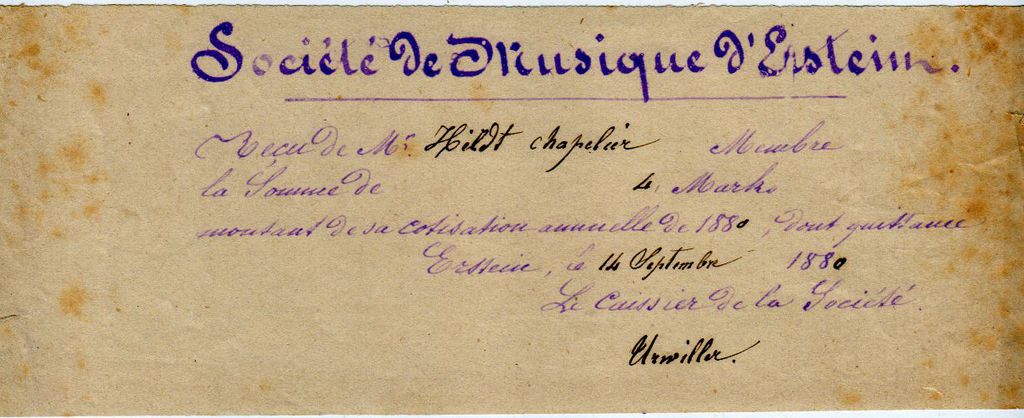 Société de Musique d'Erstein.
Reçu de Mr. Hildt chapelier Membre
la Somme de 4 Marks
montant de sa cotisation annuelle de 1880, dont quittance
Erstein, le 14 Septembre 1880
Le Caissier de la Société.
Urwiller.